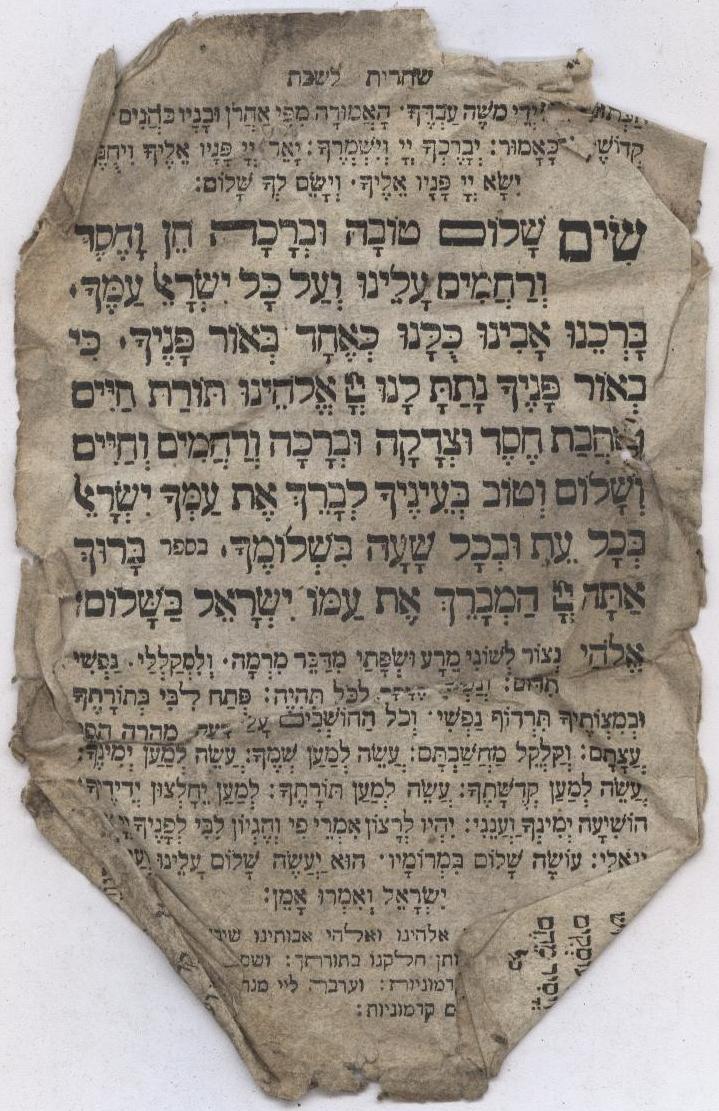 שחרית לשבת
יְדֵי משֶׁה עַבְדֶּךָ. הָאֲמוּרָה מִפִּי אַהֲרֹן וּבָנָיו כֹּהֲנִים
כָּאָמוּר: יְבָרֶכְךָ יְיָ וְיִשְׁמְרֶךָ: יָאֵר יְיָ פָּנָיו אֵלֶיךָ
יִשָּׂא יְיָ פָּנָיו אֵלֶיךָ. וְיָשֵׂם לְךָ שָׁלוֹם:
שִׂים שָׁלוֹם טוֹבָה וּבְרָכָה חֵן וָחֶסֶד
וְרַחֲמִים עָלֵינוּ וְעַל כָּל יִשְׂרָאֵל עַמֶּךָ.
בָּרְכֵנוּ אָבִינוּ כֻּלָּנוּ כְּאֶחָד בְּאוֹר פָּנֶיךָ. כִּי
בְאוֹר פָּנֶיךָ נָתַתָּ לָנוּ יְיָ אֱלֹהֵינוּ תּוֹרַת חַיִּים
וְאַהֲבַת חֶסֶד וּצְדָקָה וּבְרָכָה וְרַחֲמִים וְחַיִּים
וְשָׁלוֹם וְטוֹב בְּעֵינֶיךָ לְבָרֵךְ אֶת עַמְּךָ יִשְׂרָאֵל
בְּכָל עֵת וּבְכָל שָׁעָה בִּשְׁלוֹמֶךָ. בספר בָּרוּךְ
אַתָּה יְיָ הַמְבָרֵךְ אֶת עַמּוֹ יִשְׂרָאֵל בַּשָּׁלוֹם:
אֱלֹהַי נְצוֹר לְשׁוֹנִי מֵרָע וּשְׂפָתַי מִדַּבֵּר מִרְמָה. וְלִמְקַלְלַי. נַפְשִׁי
תִדּוֹם: לַכֹּל תִּהְיֶה: פְּתַח לִבִּי בְּתוֹרָתֶךָ
וּבְמִצְוֹתֶיךָ תִּרְדּוֹף נַפְשִׁי. וְכֹל הַחוֹשְׁבִים עָלַי רָעָה. מְהֵרָה הָפֵר
עֲצָתָם: וְקַלְקֵל מַחֲשַׁבְתָּם: עֲשֵׂה לְמַעַן שְׁמֶךָ: עֲשֵׂה לְמַעַן יְמִינֶךָ:
עֲשֵׂה לְמַעַן קְדֻשָּׁתֶךָ: עֲשֵׂה לְמַעַן תּוֹרָתֶךָ: לְמַעַן יֵחָלְצוּן יְדִידֶיךָ.
הוֹשִׁיעָה יְמִינְךָ וַעֲנֵנִי: יִהְיוּ לְרָצוֹן אִמְרֵי פִי וְהֶגְיוֹן לִבִּי לְפָנֶיךָ
וְגוֹאֲלִי: עוֹשֶׂה שָׁלוֹם בִּמְרוֹמָיו. הוּא יַעֲשֶׂה שָׁלוֹם עָלֵינוּ
יִשְׂרָאֵל וְאִמְרוּ אָמֵן:
אלהינו ואלהי אבותינו
ותן חלקנו בתורתך:
וערבה ליי
קדמוניות:
עוסקים